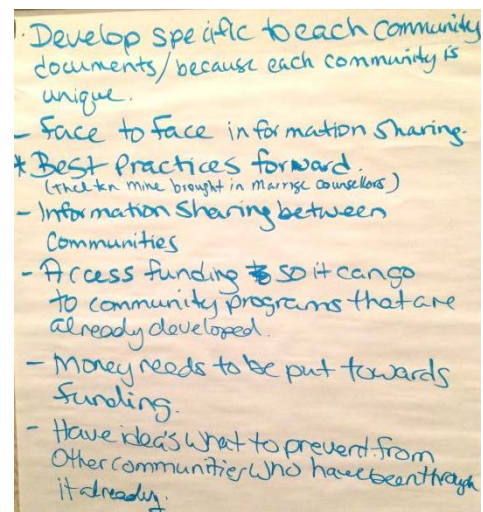 . Develop specific to each community
documents/because each community is
unique.
- Face to Face information sharing.
* Best Practices forward.
(                mine brought in marrige counsellors)
- Information Sharing between
Communities
- Access funding so it can go
to community programs that are
already developed.
- Money needs to be put towards
funding.
- Have idea's what to prevent from
Other communities who have been through
it already.